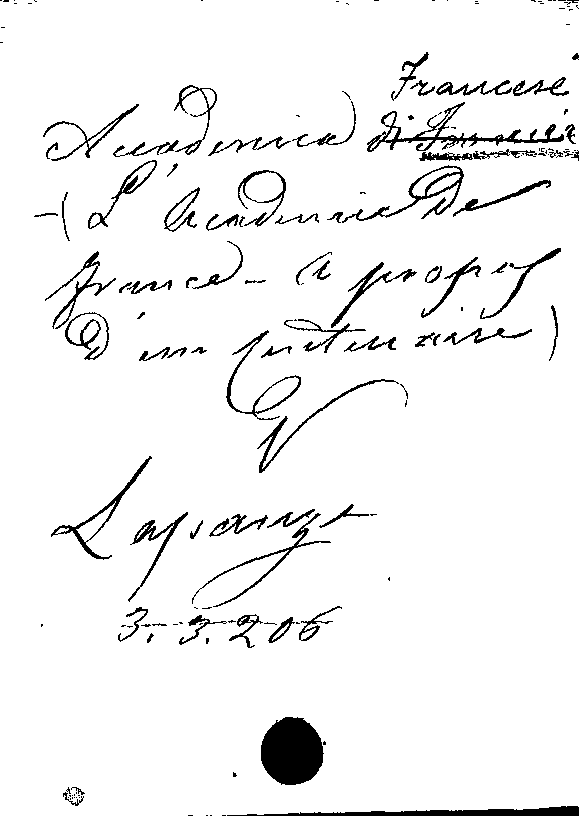 Francese
Accademia di Francia
– ( L'Academie De
France – A propos
D'un Centenaire )
V
Lapauze
3.3.206